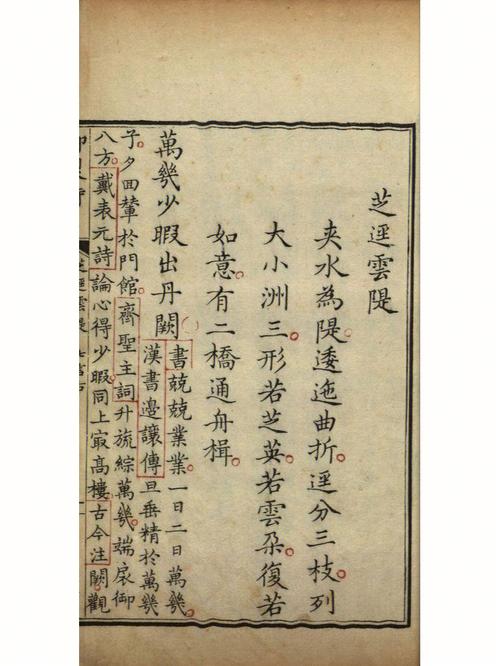 芝逕雲隄
夾水為隄逶迤曲折。逕分三枝。列
大小洲三。形若芝英。若雲朶。復若
如意。有二橋通舟楫。
萬幾少暇出丹闕
書兢兢業業。一日二日萬幾。
漢書邊讓傳旦垂精於萬幾
子。夕回輦於門館。齊聖主詞升旒綜萬幾。端扆御
八方。戴表元詩論心得少暇同上寂高樓古今注闕。觀